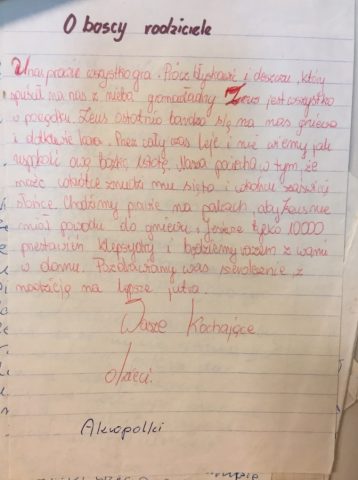 O boscy rodziciele
U nas prawie wszystko gra. Prócz błyskawic i deszczu, który
spuścił na nas z nieba gromowładny Zeus jest wszystko
w porządku. Zeus ostatnio bardzo się na nas gniewa
i dotkliwie karze. Przez cały czas leje i nie wiemy jak
uspokoić ową boską istotę. Nasza pociecha w tym, że
może wkrótce znudzi mu się to i wkońcu zaświeci
słońce. Chodzimy prawie na palcach, aby Zeus nie
miał powodu do gniewu. Jeszcze tylko 10000
przestawień klepsydry i będziemy razem z wami
w domu. Pozdrawiamy was serdecznie z
nadzieją na lepsze jutro.
Wasze Kochające
dzieci.
Akropolki